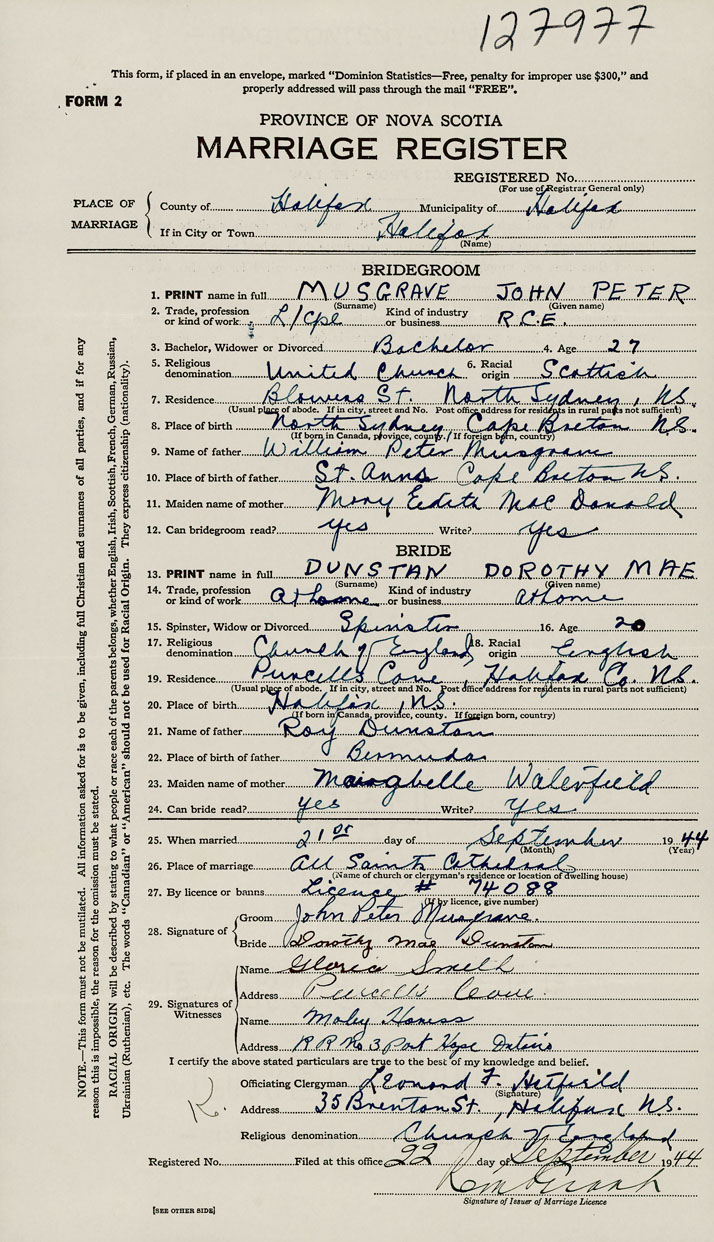 127977
This form, if placed in an envelope, marked "Dominion Statistics—Free, penalty for improper use $300," and
properly addressed will pass through the mail "FREE".
FORM 2
PROVINCE OF NOVA SCOTIA
MARRIAGE REGISTER
REGISTERED No.
(For use of Registrar General only)
PLACE OF MARRIAGE
County of Halifax Municipality of Halifax
If in City or Town Halifax
(Name)
BRIDEGROOM
1. PRINT name in full MUSGRAVE JOHN PETER
(Surname) (Given name)
2. Trade, profession or kind of work L/Cpl Kind of industry or business R.C.E.
3. Bachelor, Widower or Divorced Bachelor 4. Age 27
5. Religious denomination United Church 6. Racial origin Scottish
7. Residence Blowers St. North Sydney, N.S.
(Usual place of abode. If in city, street and No. Post office address for residents in rural parts not sufficient)
8. Place of birth North Sydney Cape Breton N.S.
(If born in Canada, province, county. If foreign born, country)
9. Name of father William Peter Musgrave
10. Place of birth of father St. Anns Cape Breton N.S.
11. Maiden name of mother Mary Edith MacDonald
12. Can bridegroom read? yes Write? yes
BRIDE
13. PRINT name in full DUNSTAN DOROTHY MAE
(Surname) (Given name)
14. Trade, profession or kind of work at home Kind of industry or business at home
15. Spinster, Widow or Divorced Spinster 16. Age 20
17. Religious denomination Church of England 18. Racial origin English
19. Residence Purcells Cove, Halifax Co. N.S.
(Usual place of abode. If in city, street and No. Post office address for residents in rural parts not sufficient)
20. Place of birth Halifax, N.S.
(If born in Canada, province, county. If foreign born, country)
21. Name of father Roy Dunstan
22. Place of birth of father Bermuda
23. Maiden name of mother
24. Can bride read? yes Write? yes
25. When married 21st day of September 1944
(Month) (Year)
26. Place of marriage All Saints Cathedral
(Name of church or clergyman's residence or location of dwelling house)
27. By licence or banns Licence # 74088
(If by licence, give number)
28. Signature of
Groom John Peter Musgrave.
Bride Dorothy Mae Dunstan
29. Signatures of Witnesses
Name Gloria Smith
Address Purcells Cove.
Name
Address R R No 3 Port Hope Ontario
I certify the above stated particulars are true to the best of my knowledge and belief.
Officiating Clergyman Leonard F. Hatfield
(Signature)
Address 35 Brenton St., Halifax N.S.
Religious denomination Church of England
Registered No. Filed at this office 22 day of September 1944
Signature of Issuer of Marriage Licence
[SEE OTHER SIDE]
NOTE.—This form must not be mutilated. All information asked for is to be given, including full Christian and surnames of all parties, and if for any
reason this is impossible, the reason for the omission must be stated.
RACIAL ORIGIN will be described by stating to what people or race each of the parents belongs, whether English, Irish, Scottish, French, German, Russian,
Ukrainian (Ruthenian), etc. The words "Canadian" or "American" should not be used for Racial Origin. They express citizenship (nationality).